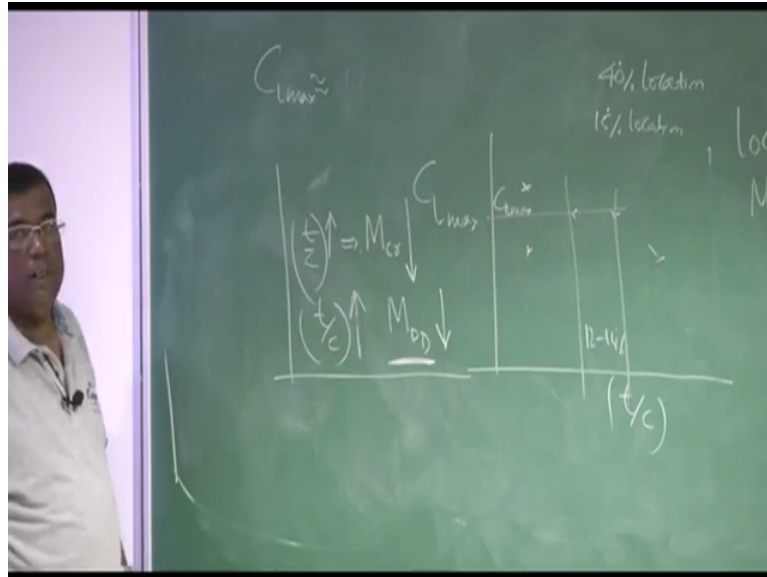 C_lmax ≈
40% location
15% location
(t/c)↑ ⇒ M_cr ↓
(t/c)↑ M_DD ↓
C_lmax
C_lmax*
12-14%
(t/c)
loc
M